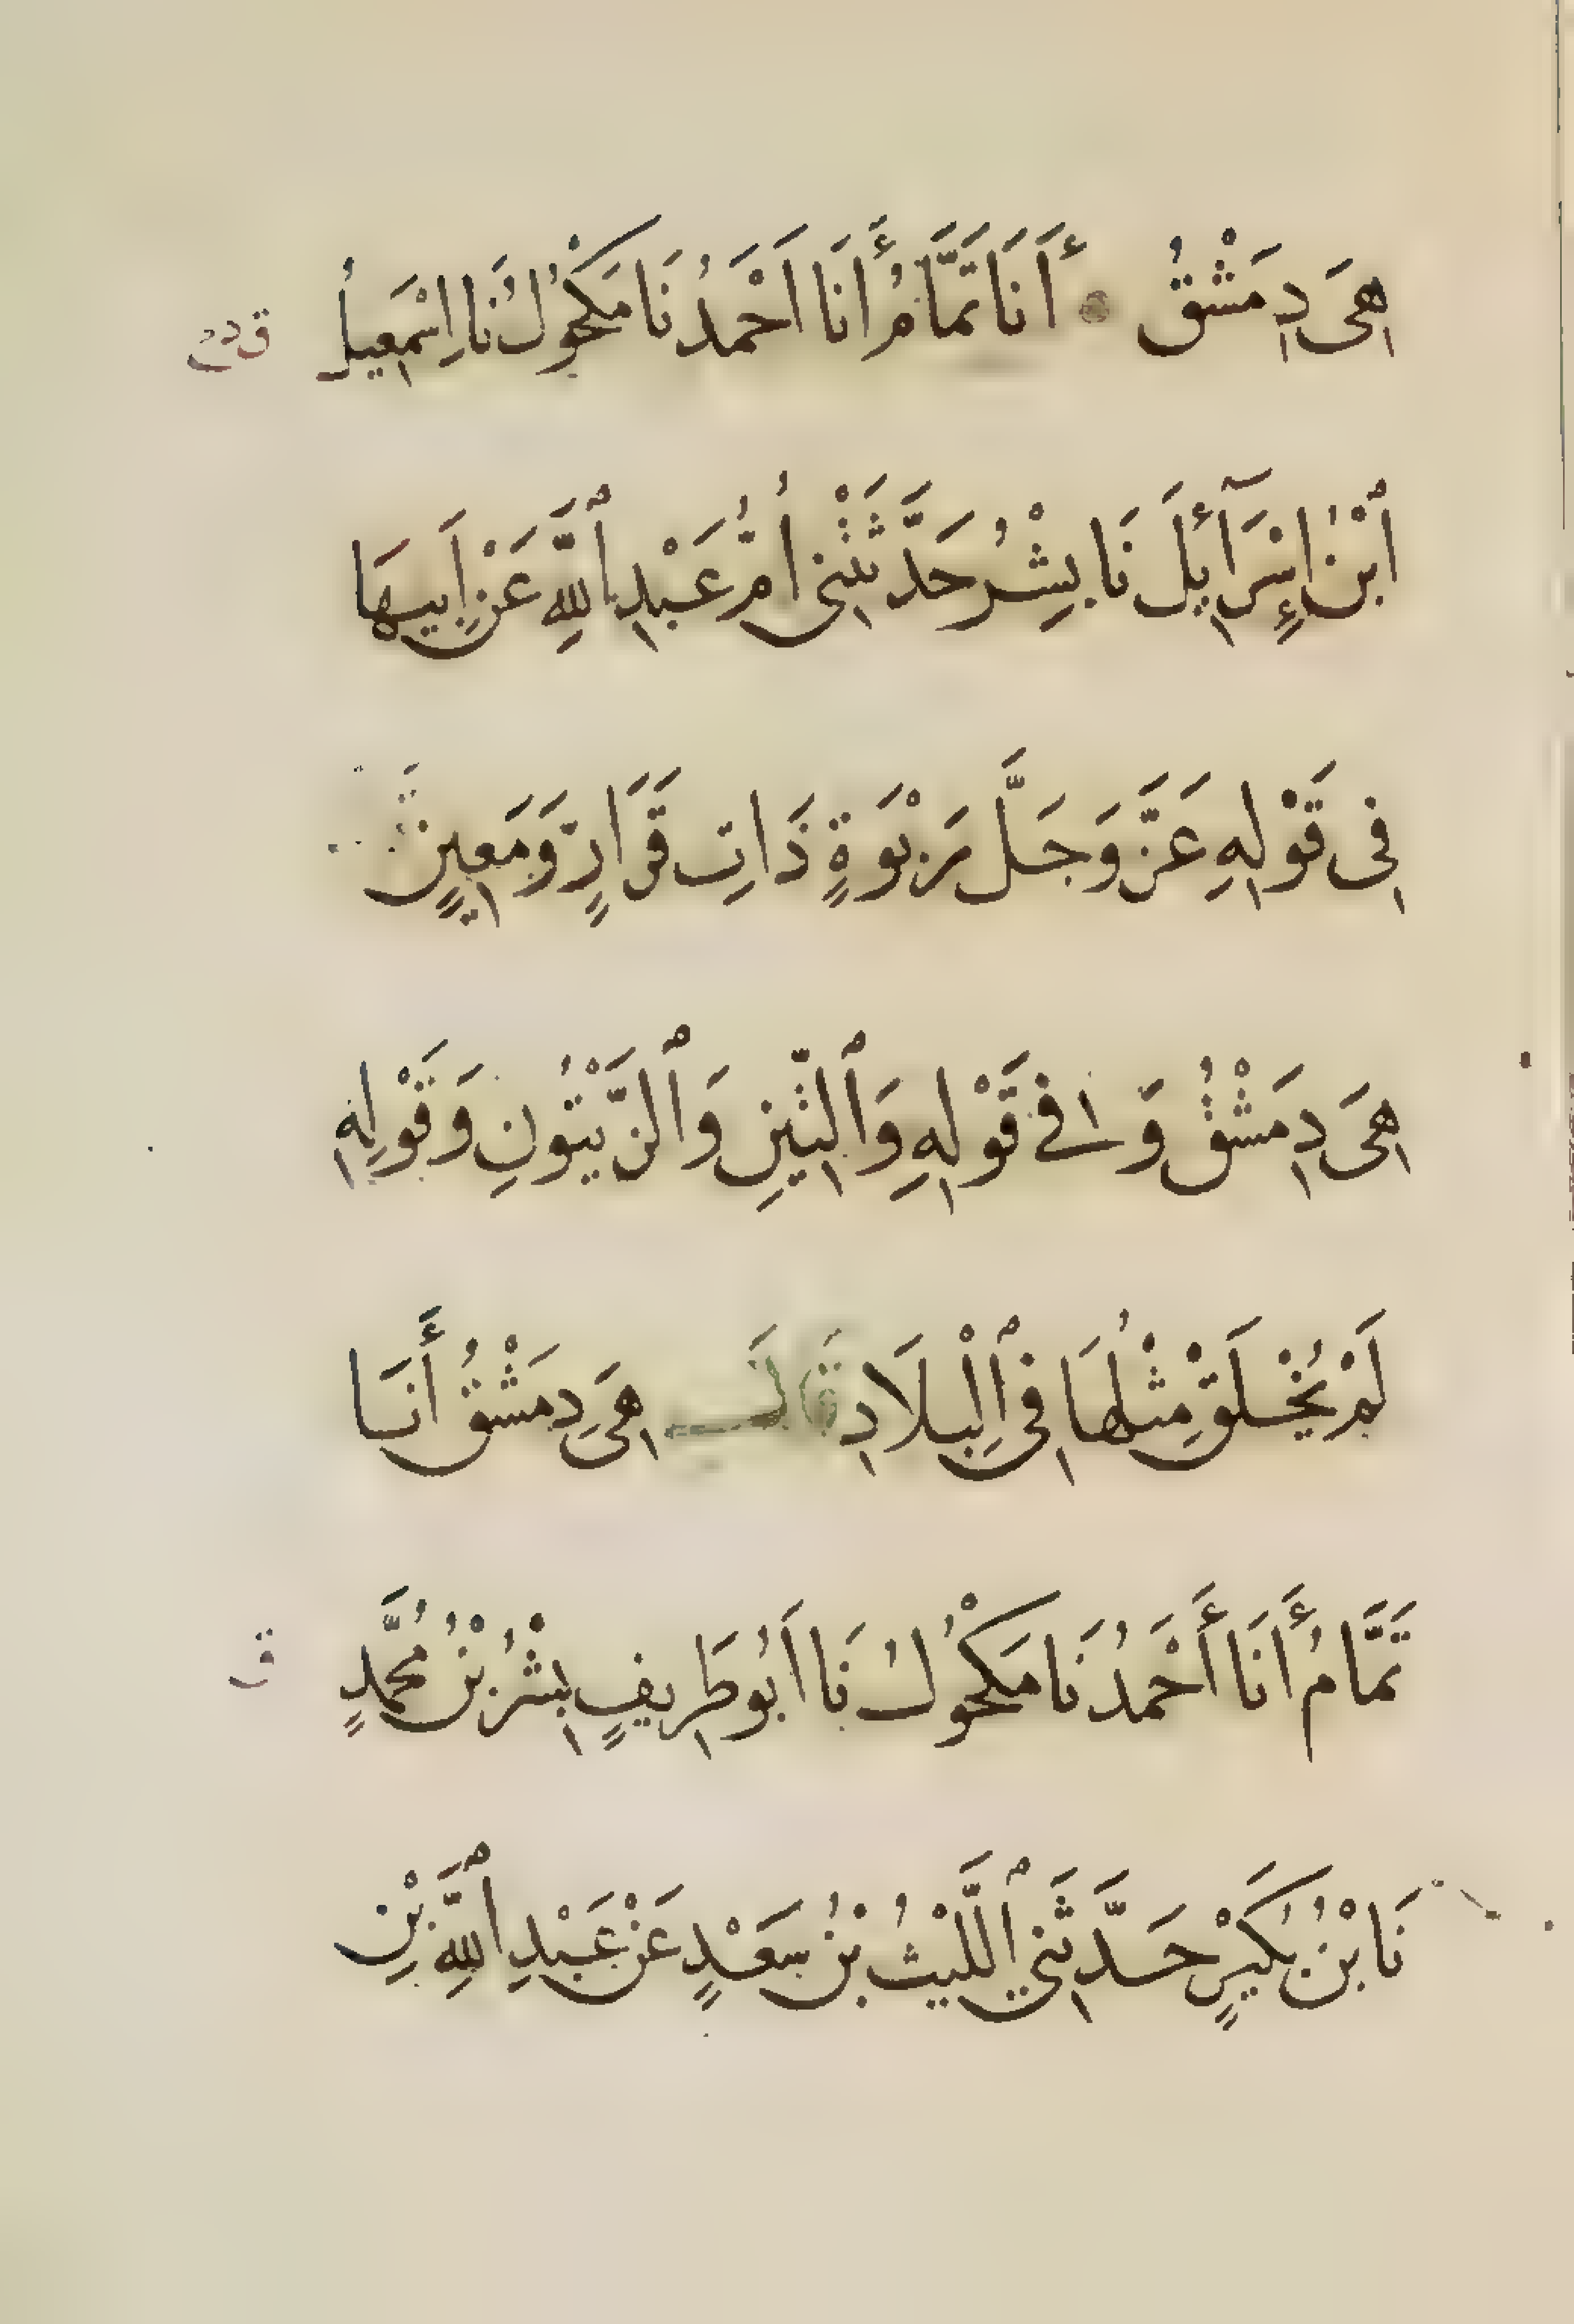 هِيَ دِمَشْقُ أَنَا تَمَّامُ أَنَا اَحْمَدُ نَا مَكْحُولُ نَا اِسْمَعِيلُ
ٱبْنُ إِسْرَآئِلَ نَا بِشْرُ حَدَّثَتْنِى اُمُّ عَبْدِ ٱللَّهِ عَنْ اَبِيهَا
فِى قَوْلِهِ عَزَّ وَجَلَّ رَبْوَةٍ ذَاتِ قَرَارٍ وَّمَعِينٍ
هِىَ دِمَشْقُ وَ فى قَوْلِهِ وَٱلتِّينِ وَٱلزَّيْتُونِ وَقَوْلِهِ
لَمْ يُخْلَقْ مِثْلُهَا فِى ٱلْبِلَادِ قَالَ هِىَ دِمَشْقُ أَنَا
تَمَّامُ أَنَا أَحْمَدُ نَا مَكْحُولُ نَا اَبُو طَرِيفٍ بِشْرُ بْنُ مُحَمَّدٍ
نَا بْنُ بُكَيْرٍ حَدَّثَنِي ٱللَّيْثُ بْنُ سَعْدٍ عَنْ عَبْدِ ٱللَّهِ بْنِ